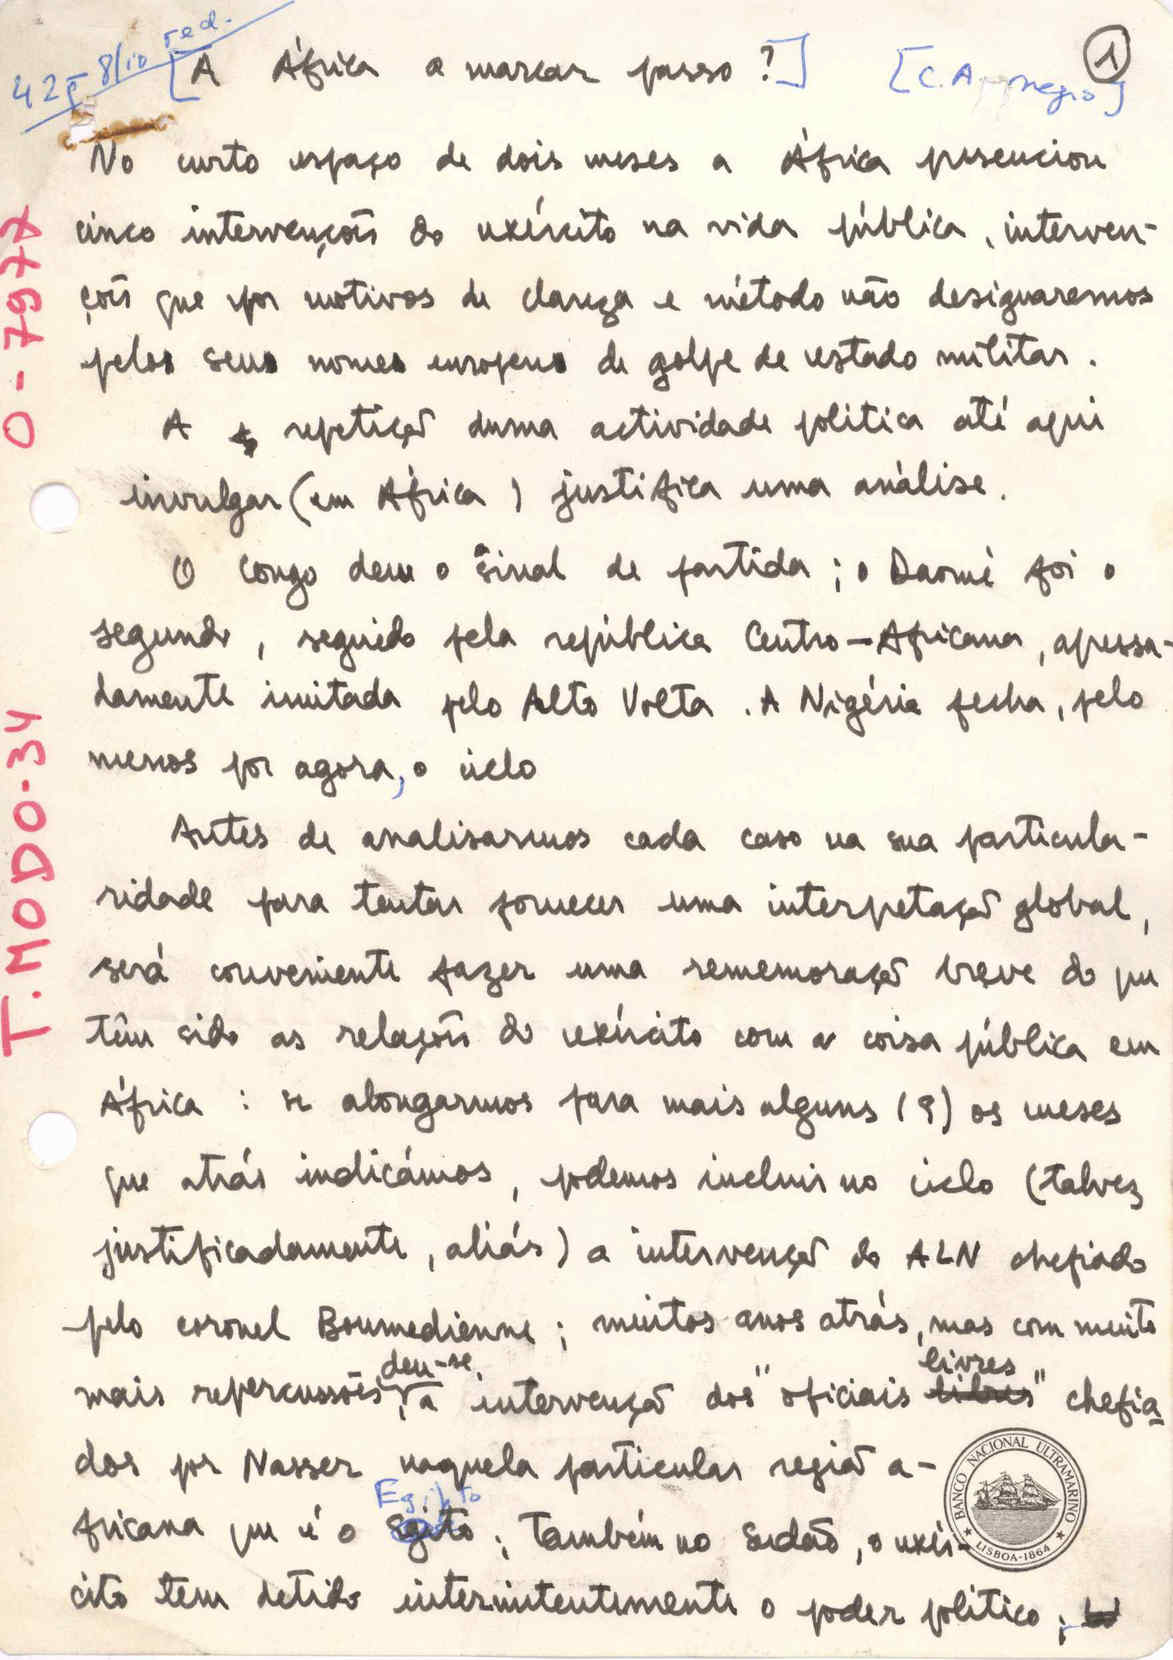 42 g 8/10 red.
[A África a marcar passo?] [C. A negro]
1
No curto espaço de dois meses a África presenciou
cinco intervenções do exército na vida pública, interven-
ções que por motivos de clareza e método não designaremos
pelos seus nomes europeus de golpe de estado militar.
A repetição duma actividade politica até aqui
invulgar (em África) justifica uma análise.
O Congo deu o sinal de partida; o Daomé foi o
segundo, seguido pela república Centro-Africana, apressa-
damente imitada pelo Alto Volta. A Nigéria fecha, pelo
menos por agora, o ciclo
Antes de analisarmos cada caso na sua particula-
ridade para tentar fornecer uma interpetação global,
será conveniente fazer uma rememoração breve do que
têm sido as relações do exército com a coisa pública em
África: se alongarmos para mais alguns (9) os meses
que atrás indicámos, podemos incluir no ciclo (talvez
justificadamente, aliás) a intervenção do ALN chefiado
pelo coronel Boumedienne; muitos anos atrás, mas com muito
mais repercussões, deu-se a intervenção dos "oficiais livres" chefia-
dos por Nasser naquela particular região a-
fricana que é o Egipto; Também no Sudão, o exér-
cito tem detido intermitentemente o poder politico;
O-7977
T.MODO-34
BANCO NACIONAL ULTRAMARINO
LISBOA-1864